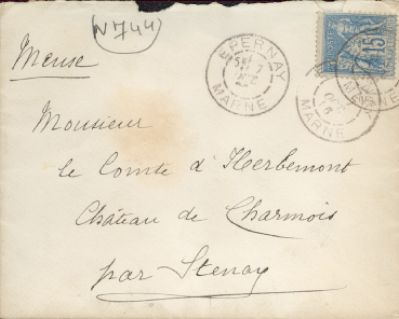 N744
EPERNAY
MARNE
15
MARNE
Meuse
Monsieur
le Comte d'Herbemont
Château de Charmois
par Stenay